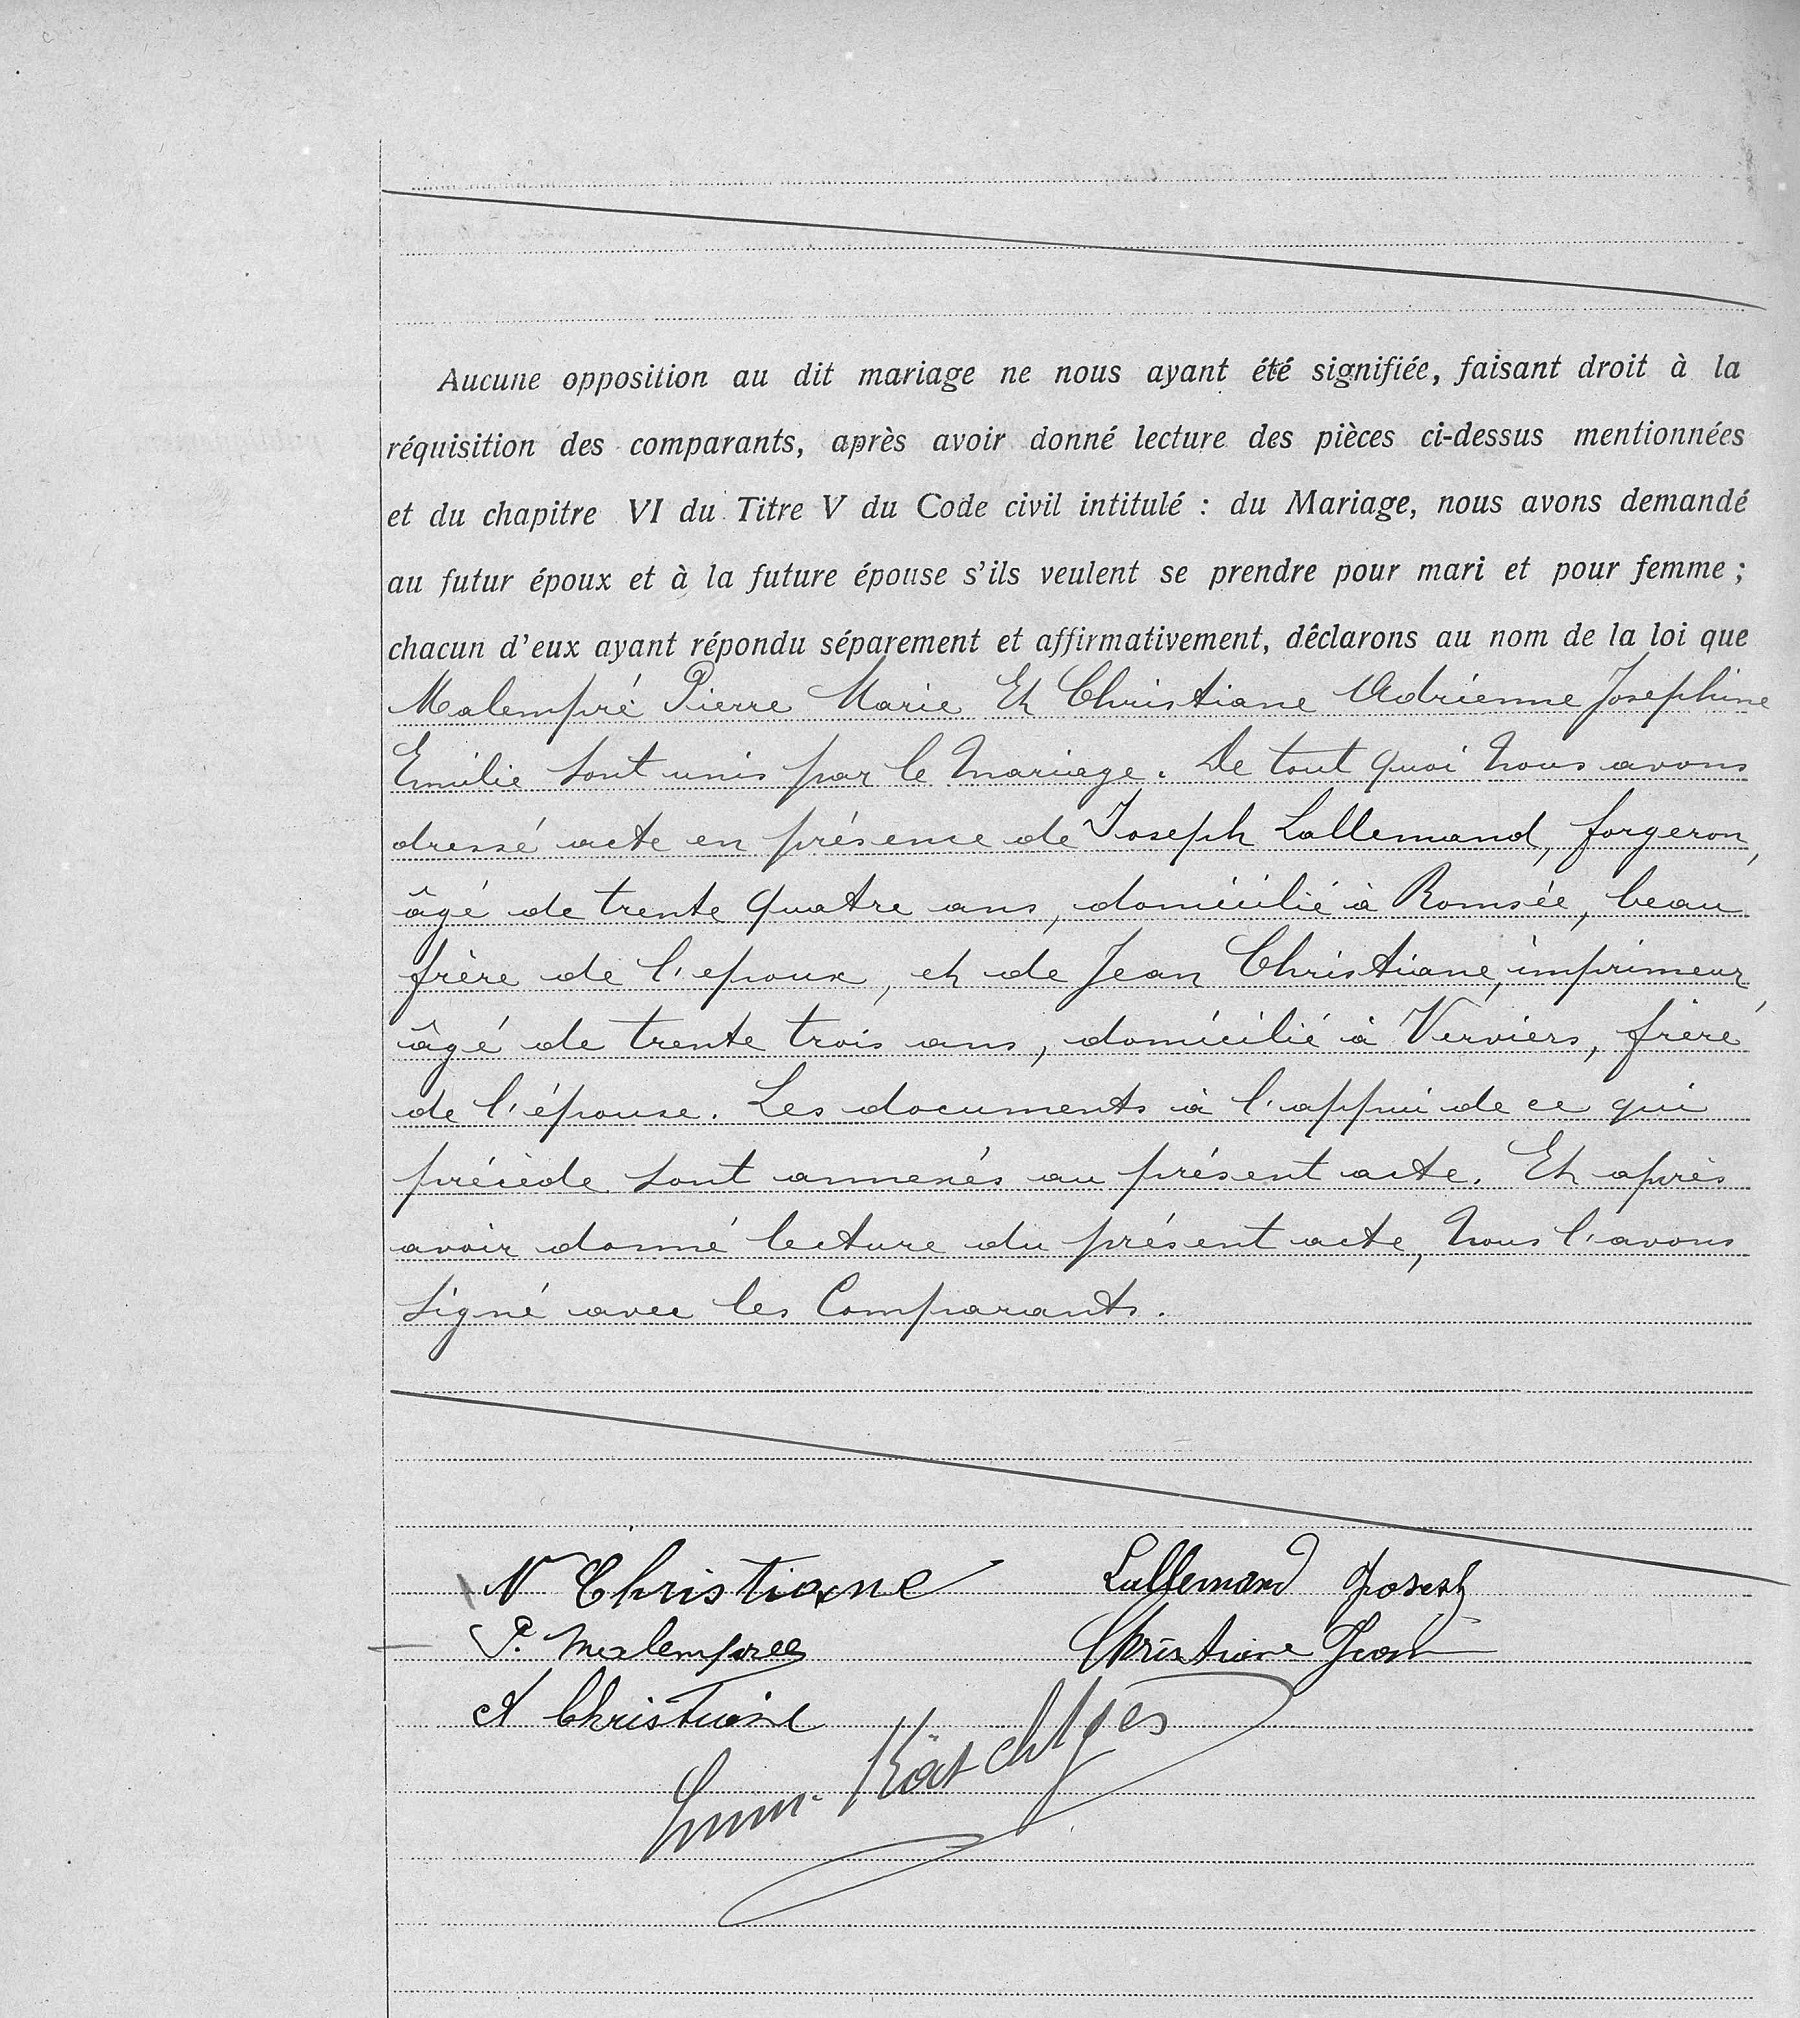 Aucune opposition au dit mariage ne nous ayant été signifiée, faisant droit à la
réquisition des comparants, après avoir donné lecture des pièces ci-dessus mentionnées
et du chapitre VI du Titre V du Code civil intitulé : du Mariage, nous avons demandé
au futur époux et à la future épouse s'ils veulent se prendre pour mari et pour femme ;
chacun d'eux ayant répondu séparement et affirmativement, dêclarons au nom de la loi que
Malempré Pierre Marie Et Christiane Adrienne Josephine
Emilie sont unis par le Mariage. De tout quoi Nous avons
dressé acte en présence de Joseph Lallemand, forgeron,
âgé de trente quatre ans, domicilié à Romsée, beau
frère de l'epoux, et de Jean Christiane, imprimeur,
âgé de trente trois ans, domicilié à Verviers, frère
de l'épouse. Les documents à l'appui de ce qui
précède sont annexés au présent acte. Et après
avoir donné lecture du présent acte, Nous l'avons
signé avec les Comparants.
N Christiane Lallemand Joseph
P. Malempree Christiane Jean
A Christiane